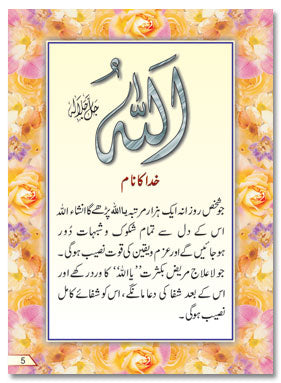 اللہ
جل جلالہ
خدا کا نام
جو شخص روزانہ ایک ہزار مرتبہ یا اللہ پڑھے گا انشاء اللہ
اس کے دل سے تمام شکوک و شبہات دُور
ہو جائیں گے اور عزم و یقین کی قوت نصیب ہو گی۔
جو لاعلاج مریض بکثرت ’’یا اللہ‘‘ کا ورد رکھے اور
اس کے بعد شفا کی دعا مانگے، اس کو شفائے کامل
نصیب ہو گی۔
5